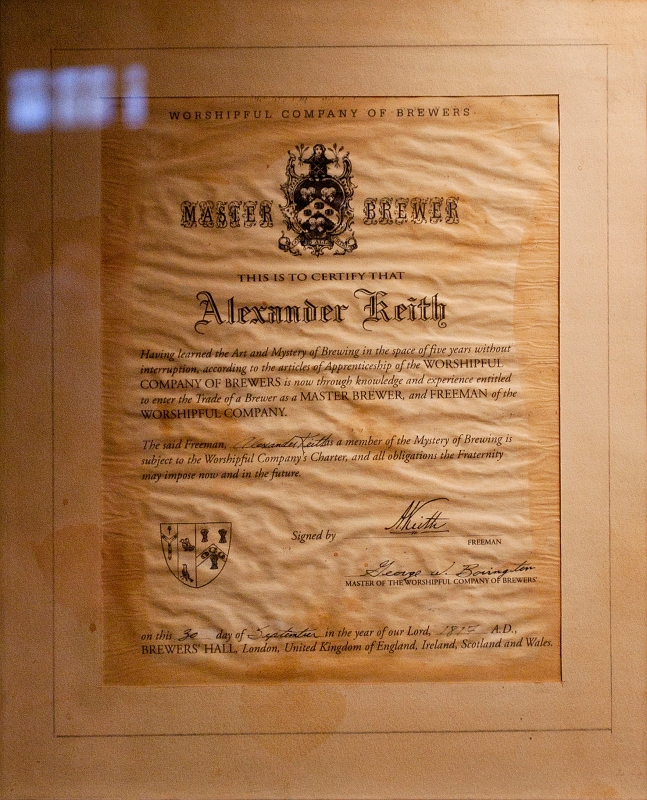 WORSHIPFUL COMPANY OF BREWERS
MASTER BREWER
THIS IS TO CERTIFY THAT
Alexander Keith
Having learned the Art and Mystery of Brewing in the space of five years without
interruption, according to the articles of Apprenticeship of the WORSHIPFUL
COMPANY OF BREWERS is now through knowledge and experience entitled
to enter the Trade of a Brewer as a MASTER BREWER, and FREEMAN of the
WORSHIPFUL COMPANY.
The said Freeman, Alexander Keith is a member of the Mystery of Brewing is
subject to the Worshipful Company's Charter, and all obligations the Fraternity
may impose now and in the future.
Signed by AKeith
FREEMAN
George W. Bovington
MASTER OF THE WORSHIPFUL COMPANY OF BREWERS'
on this 30 day of September in the year of our Lord, A.D.,
BREWERS' HALL, London, United Kingdom of England, Ireland, Scotland and Wales.